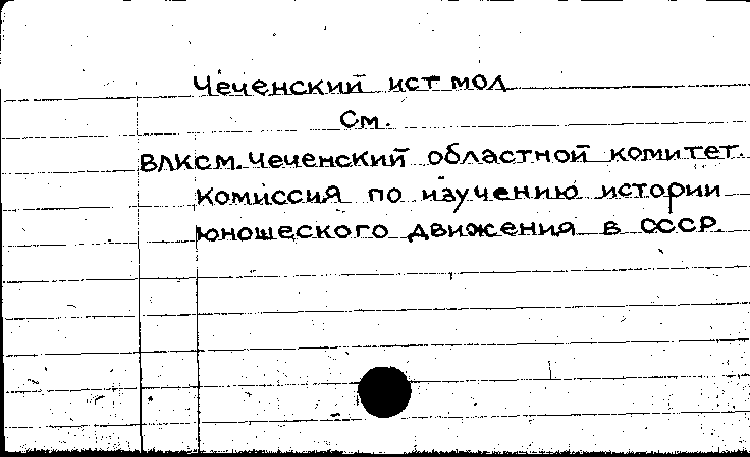 Чеченский ист мол
См.
ВЛКСМ. Чеченский областной комитет.
Комиссия по изучению истории
юношеского движения в СССР.